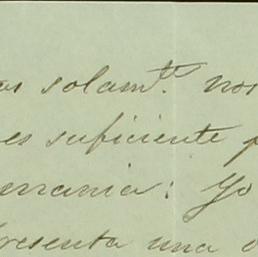 solamte. nos
es suficiente p
errania: Yo
presenta una